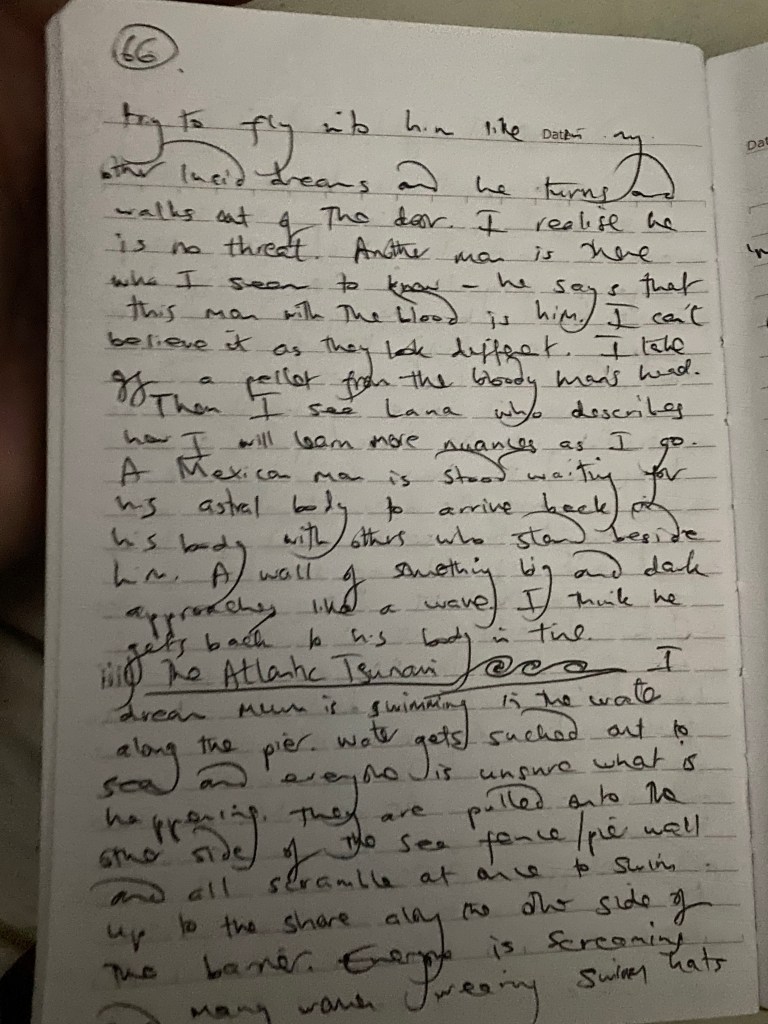 66.
try to fly into him like Date: my
other lucid dreams and he turns and
walks out of The door. I realise he
is no threat. Another man is here
who I seem to know - he says that
this man with The blood is him. I can't
believe it as they look different. I take
off a pellet from the bloody man's head.
Then I see Lana who describes
how I will learn more nuances as I go.
A Mexican man is stood waiting for
his astral body to arrive back
his body with others who stand beside
him. A wall of something big and dark
approaches like a wave. I think he
gets back to his body in time.
iii) The Atlantic Tsunami I
dream Mum is swimming in the water
along the pier. Water gets sucked out to
sea and everyone is unsure what is
happening. They are pulled onto the
other side of the sea fence/pier wall
and all scramble at once to swim
up to the shore along the other side of
the barrier. Everyone is screaming
many women wearing swim hats
Dat